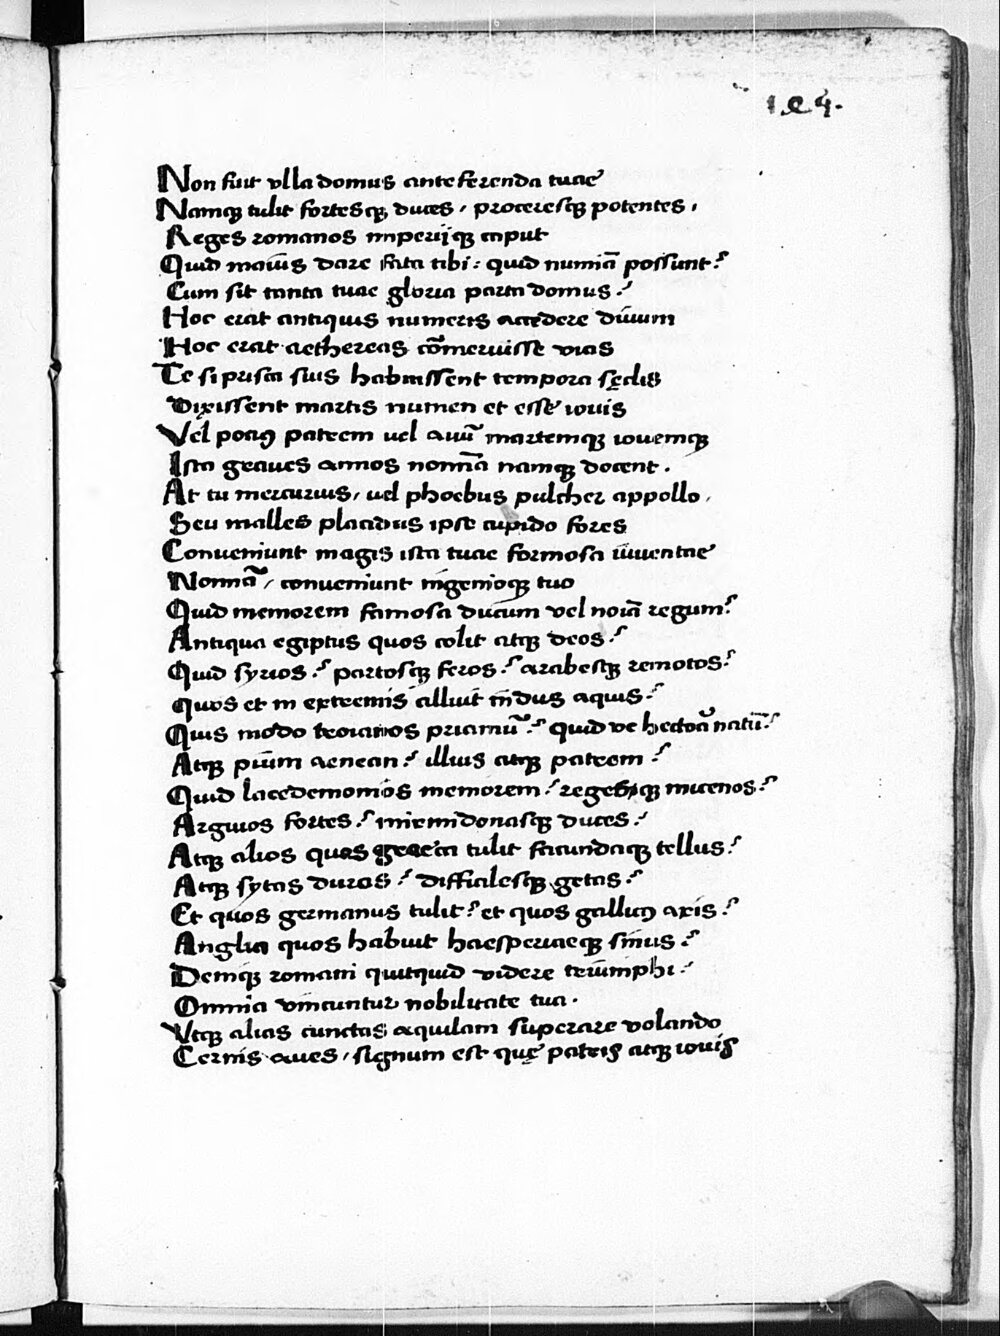 124.
Non fuit vlla domus anteferenda tuae
Namqȝ tulit fortesqȝ duces, proceresqȝ potentes,
Reges romanos imperijqȝ caput
Quid maius dare fata tibi: quid numiā possunt?
Cum sit tanta tuae gloria parta domus?
Hoc erat antiquis numeris accedere diuum
Hoc erat aethereas cōmeruisse vias
Te si prisca suis habuissent tempora sęclis
Dixissent martis numen et esse iouis
Vel potiꝰ patrem uel auū martemqȝ iouemqȝ
Ista graues annos nomīa namqȝ docent.
At tu mercurius, uel phoebus pulcher appollo,
Seu malles placidus ipse cupido fores
Conueniunt magis ista tuae formosa iuuentae
Nomīa, conueniunt ingenioqȝ tuo
Quid memorem famosa ducum vel noīa regum?
Antiqua egiptus quos colit atqȝ deos?
Quid syrios? partosqȝ feros? arabesqȝ remotos?
quos et in extremis alluit indus aquis?
Quis modo troianos priamū? quid ve hectorā natū?
Atqȝ pium aenean? illius atqȝ patrem?
Quid lacedemonios memorem? regesqȝ micenos?
Argiuos fortes? mirmidonasqȝ duces?
Atqȝ alios quos graecia tulit facundaqȝ tellus?
Atqȝ sytas duros? difficilesqȝ getas?
Et quos germanus tulit? et quos gallicꝰ axis?
Anglia quos habuit haesperiaeqȝ sinus?
Deniqȝ romani quicquid videre triumphi?
Omnia vincuntur nobilitate tua.
Vtqȝ alias cunctas aquilam superare volando
Cernis aues, signum est quę patris atqȝ iouis